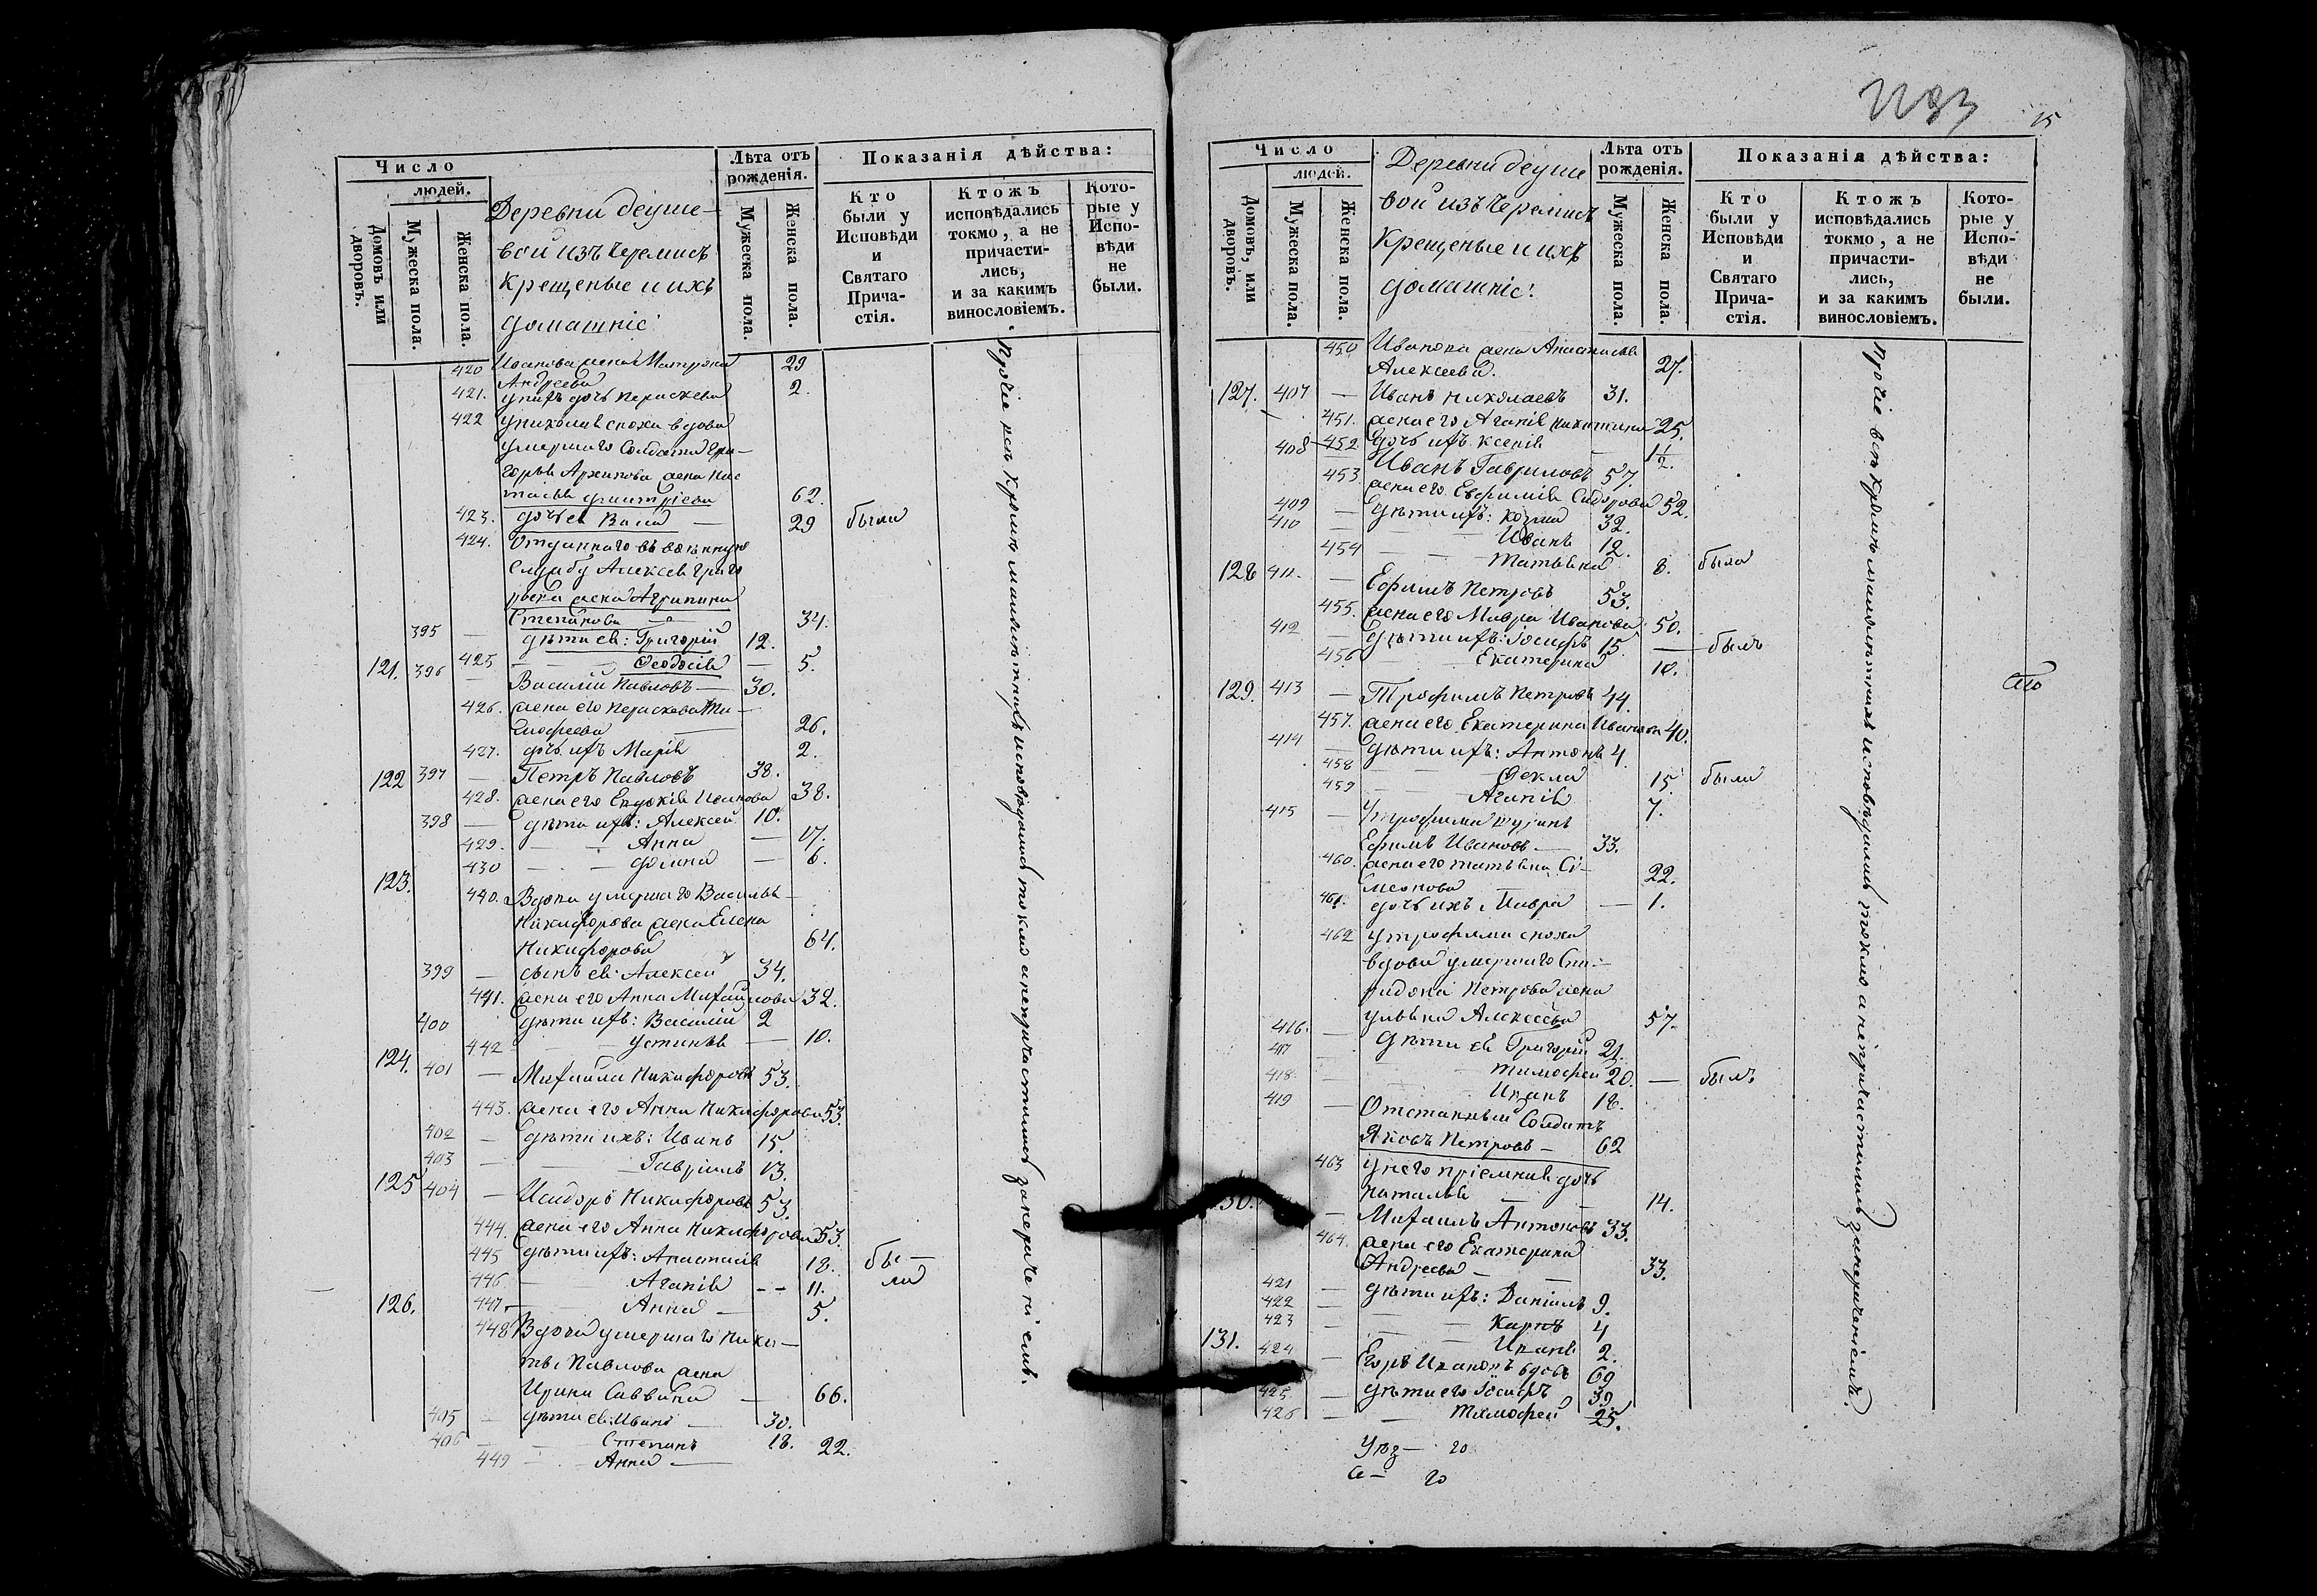 Число
людей.
Домовъ или дворовъ.
Мужеска пола.
Женска пола.
Деревни беуше-
вой изъ Черемисъ
Крещеные и ихъ
домашніе
Лѣта отъ рожденія.
Мужеска пола.
Женска пола.
Показанія дѣйства:
Кто были у Исповѣди и Святаго Прича-стія.
Ктожъ исповѣдались токмо, а не причасти-лись, и за какимъ винословіемъ.
Кото-рые у Испо-вѣди не были.
420 Иванова жена Матрона
Андреева 29
421. у нихъ дочь Параскева 2.
422 у николая снока вдова
умершаго Солдата Гри-
горья Архипова жена Нас
тасья Дмитріева 62.
423. дочь ея Васса — 29 были
424. Отданнаго въ военную
службу Алексея Григо
рьева жена Агрипина
Степанова — 34.
395 — дѣти ея: Григорій 12.
425 — Ѳеодосія — 5.
121. 396 — Василій Павловъ — 30.
426. жена его Параскева Ти-
моѳеева — 26.
427. дочь ихъ Марія 2.
122 397 — Петръ Павловъ 38.
428. жена его Евдокія Иванова 38.
398 — дѣти ихъ: Алексей 10.
429. — Анна — 17.
430 — Домна — 6.
123. 440. Вдова умершаго Василья
Никифорова жена Елена
Никифорова 64.
399 — сынъ ея Алексей 34.
441. жена его Анна Михайлова 32.
400 дѣти ихъ: Василій 2
442 — Устинья — 10.
124. 401 — Михайла Никифоровъ 53.
443. жена его Анна Никифорова 53.
402 — дѣти ихъ: Иванъ 15.
403 — Гавріилъ 13.
125 404 — Исидоръ Никифоровъ 53.
444. жена его Анна Никифорова 53.
445 дѣти ихъ: Анастасія 18. бы-
446 — Агапія — 11. ли
447. — Анна — 5.
126. 448 Вдова умершаго Ники-
ты Павлова жена
Ирина Саввина — 66.
405 — дѣти ея: Иванъ — 30.
406 — Степанъ 18.
449 — Анна — 22.
Прочіе всѣ кромѣ малолѣтнихъ исповѣдались токмо а непричастились за нераченіемъ.
15
Число
людей.
Домовъ, или дворовъ.
Мужеска пола.
Женска пола.
Деревни беуше
вой изъ Черемисъ
Крещеные и ихъ
домашніе:
Лѣта отъ рожденія.
Мужеска пола.
Женска пола.
Показанія дѣйства:
Кто были у Исповѣди и Святаго Прича-стія.
Ктожъ исповѣдались токмо, а не причасти-лись, и за какимъ винословіемъ.
Кото-рые у Испо-вѣди не были.
450 Иванова жена Анастасія
Алексеева. 27.
127. 407 — Иванъ Николаевъ 31.
451. жена его Агапія Никитина 25.
452 дочь ихъ Ксенія — 1½.
408 — Иванъ Гавриловъ 57.
453. жена его Евфимія Сидорова 52.
409 — дѣти ихъ: Козма 32.
410 — Иванъ 12.
454 — Татьяна 8. была
128 411. — Ефимъ Петровъ 53.
455. жена его Мавра Иванова 50.
412 — дѣти ихъ: Іосифъ 15 — былъ
456 — Екатерина 10.
129. 413 — Трофимъ Петровъ 44.
457. жена его Екатерина Иванова 40.
414 — дѣти ихъ: Антонъ 4.
458 — Ѳекла 15. были
459 — Агапія 7.
415 — У трофима шуринъ
Ефимъ Ивановъ — 33.
460. жена его татьяна Си-
меонова 22.
461. дочь ихъ Мавра — 1.
462 у трофима снока
вдова умершаго Спи-
ридона Петрова жена
Ульяна Алексеева 57.
416. — дѣти ея Григорій 21.
417 — Тимофей 20. — былъ
418. — Иванъ 18.
419 — Отставный Солдатъ
Яковъ Петровъ — 62
463 у него пріемная дочь
Наталья — 14.
130. — Михаилъ Антоновъ 33.
464. жена его Екатерина
Андреева — 33.
421 — дѣти ихъ: Даніилъ 9.
422 — Карпъ 4
423 — Иванъ 2.
131. 424 — Егоръ Ивановъ вдовъ 69
425 — дѣти его Іосифъ 39.
426 — Тимофей 25.
Прочіе всѣ кромѣ малолѣтнихъ исповѣдались токмо а непричастились за нераченіемъ.